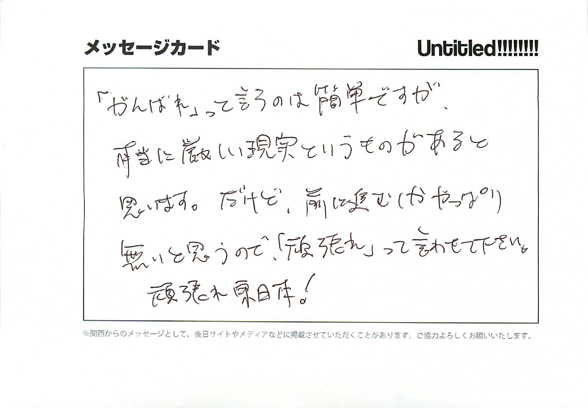 メッセージカード
Untitled!!!!!!!!
「がんばれ」って言うのは簡単ですが、
本当に厳しい現実というものがあると
思います。だけど、前に進むしかやっぱり
無いと思うので、「頑張れ」って言わせて下さい。
頑張れ東日本!
※関西からのメッセージとして、後日サイトやメディアなどに掲載させていただくことがあります。ご協力よろしくお願いいたします。